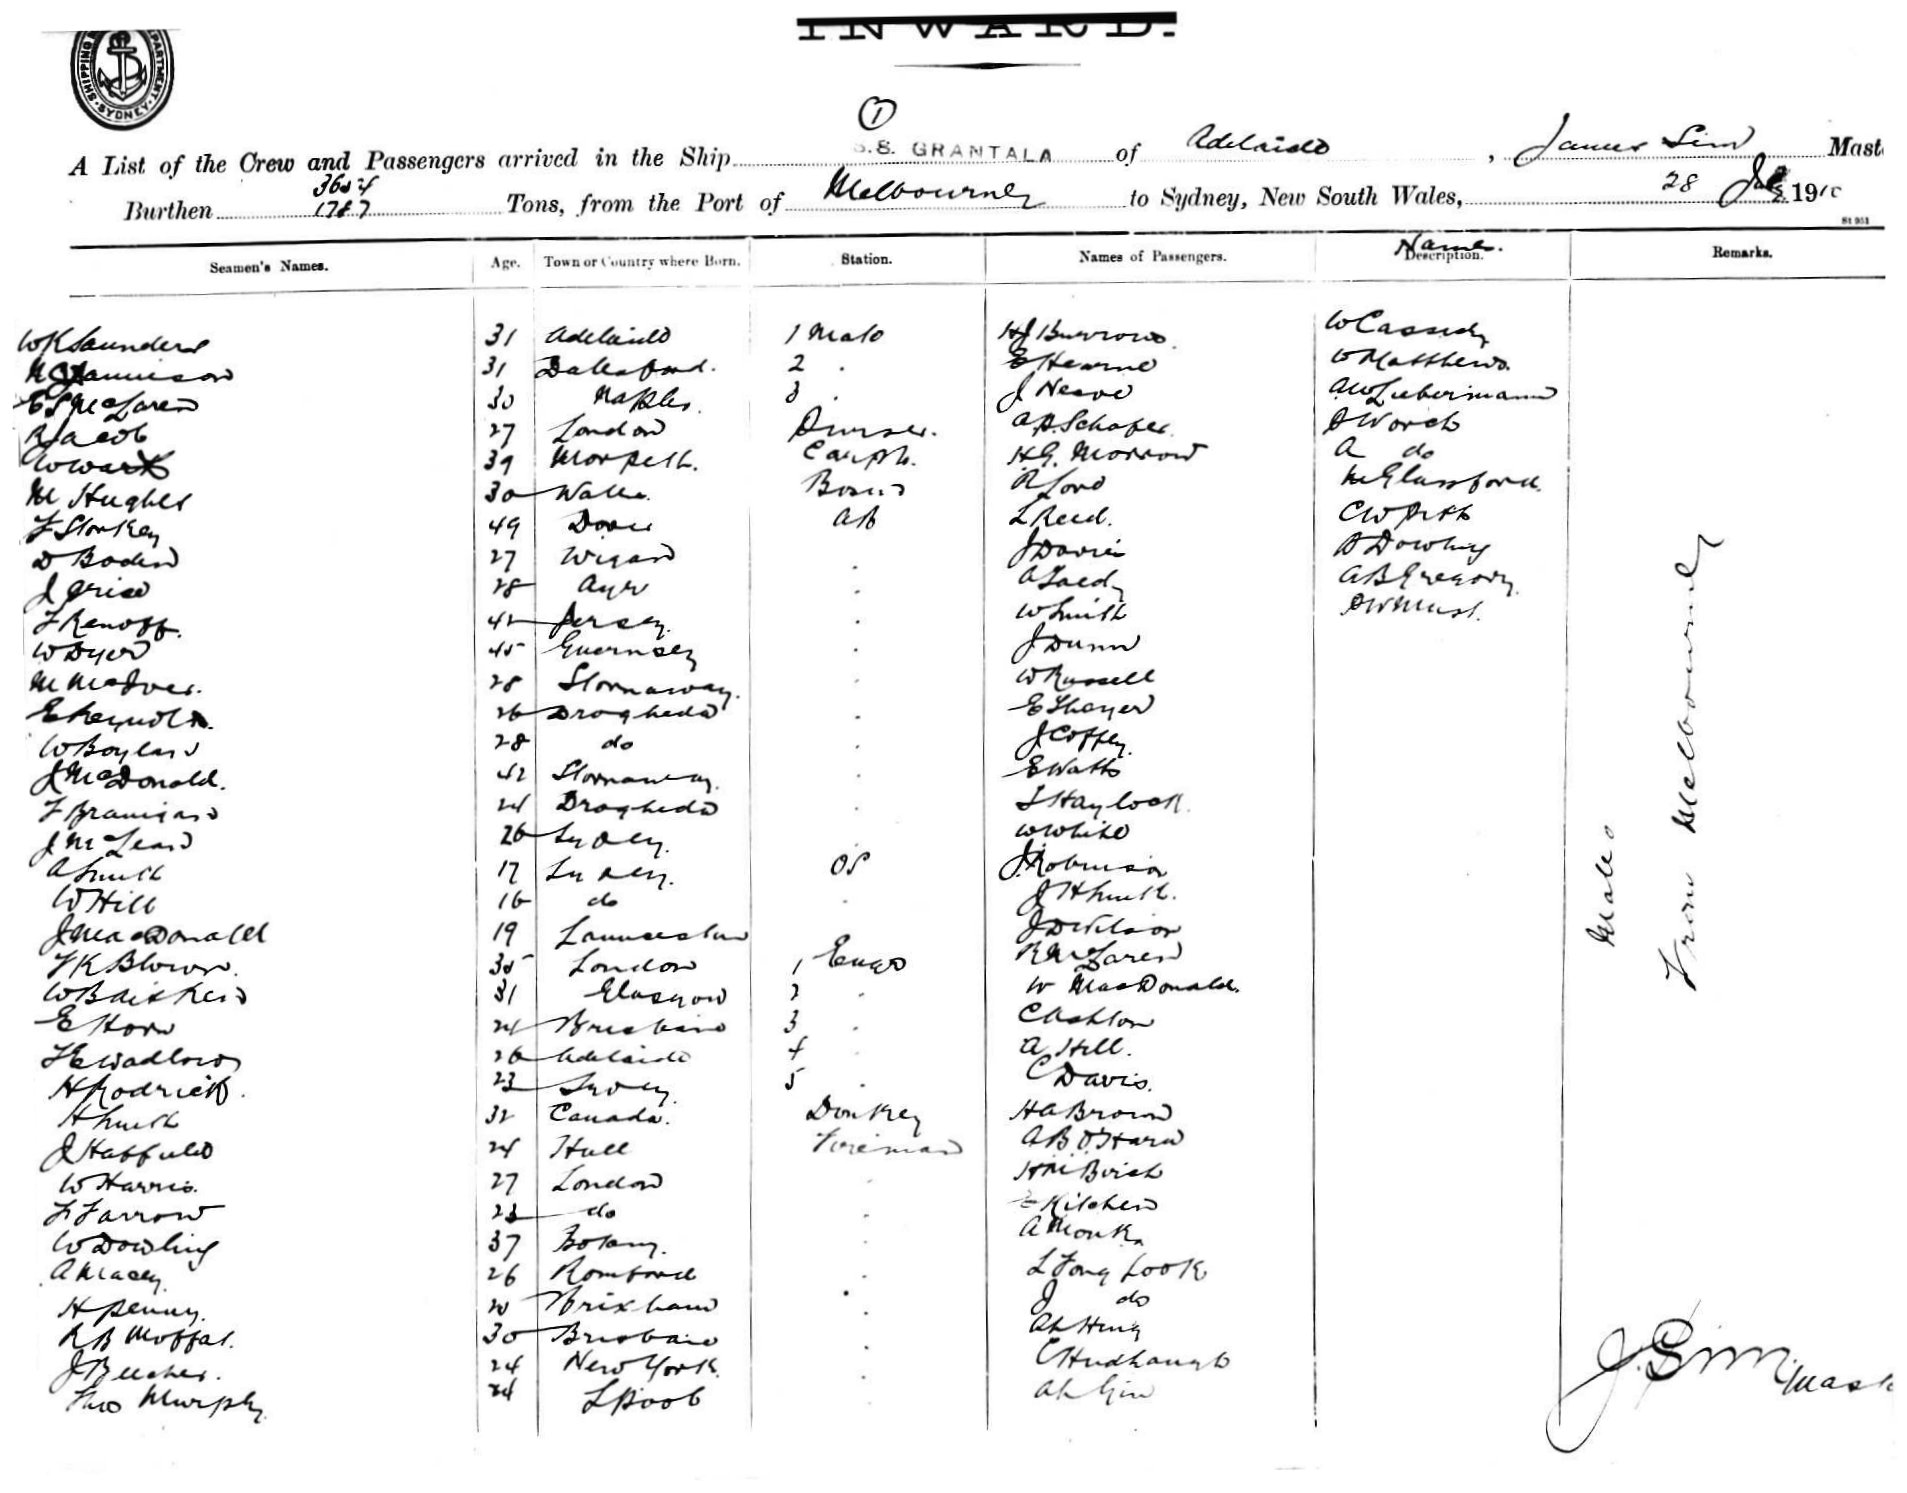 INWARD.
SHIPPING DEPARTMENT SYDNEY
1
A List of the Crew and Passengers arrived in the Ship S.S. GRANTALA of Adelaide, James Sim Mast
3654
Burthen 1787 Tons, from the Port of Melbourne to Sydney, New South Wales, 28 1910
St 951
Name.
Seamen's Names. Age. Town or Country where Born. Station. Names of Passengers. Description. Remarks.
W K Saunders 31 Adelaide 1 Mate H J Burrows W Cassidy
Jamieson 31 2 . E Hearne W Matthews
E S McLaren 30 Naples. 3 . J Neave A W Liebermann
R Jacob 27 London Purser. A P Schafer. P Worch
W Wark 39 Morpeth. Carptr. H G. Morrow A do
M Hughes 30 Wales. Bosun R Lord M Glassford.
F Storkey 49 Dover AB L Reed. C W Pitt
D Boden 27 Wigan . J Davies A Dowling
J Grise 28 Ayr . A B Gregory
F Renoff. 42 Jersey. . W Smith
W Dyer 45 Guernsey . J Dunn
M McIver. 28 Stornaway. . W Russell
E Reynolds. 26 Drogheda . E Thayer
W Boylan 28 do . J Coffey.
J McDonald. 42 Stornaway. . E Watts
F Branigan 24 Drogheda . Haylock.
J McLean 26 Sydney. . W White
A Smith 17 Sydney. OS J Robinson
W Hill 16 do . J H Smith.
J MacDonald 19 Launceston J D Wilson
F K Blown. 35 London 1 Engr R McLaren
W B Aitken 31 Glasgow 2 . W MacDonald.
E Horn 24 Brisbane 3 . C Ashton
F E Wadlow 26 Adelaide 4 . A Hill.
H Rodrick. 23 Sydney. 5 . C Davis.
H Smith 32 Canada. Donkey H A Brown
J Hatfield 24 Hull Fireman A B O'Hara
W Harris. 27 London . H M Birch
F Farrow 23 do . Kitchen
W Dowling 37 Botany. . A Monk
A Macey. 26 Romford . L Fong Look
H Penny. 20 Brixham . J do
R B Moffat. 30 Brisbane . Ah Hing
J Beecher. 24 New York. .
Thos Murphy 24 L Pool . Ah Gin
Males
From Melbourne
J. Sim. Mast